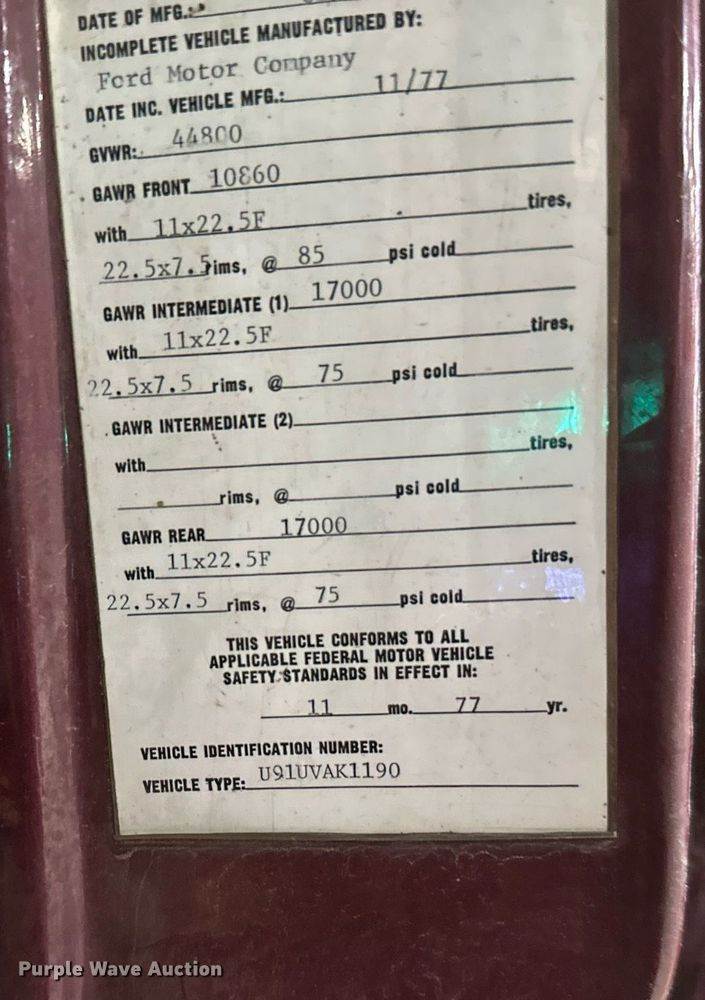 DATE OF MFG.:
INCOMPLETE VEHICLE MANUFACTURED BY:
Ford Motor Company
DATE INC. VEHICLE MFG.: 11/77
GVWR: 44800
GAWR FRONT 10860
with 11x22.5F tires,
22.5x7.5 rims, @ 85 psi cold
GAWR INTERMEDIATE (1) 17000
with 11x22.5F tires,
22.5x7.5 rims, @ 75 psi cold
GAWR INTERMEDIATE (2)
with tires,
rims, @ psi cold
GAWR REAR 17000
with 11x22.5F tires,
22.5x7.5 rims, @ 75 psi cold
THIS VEHICLE CONFORMS TO ALL
APPLICABLE FEDERAL MOTOR VEHICLE
SAFETY STANDARDS IN EFFECT IN:
11 mo. 77 yr.
VEHICLE IDENTIFICATION NUMBER:
VEHICLE TYPE: U91UVAK1190
Purple Wave Auction